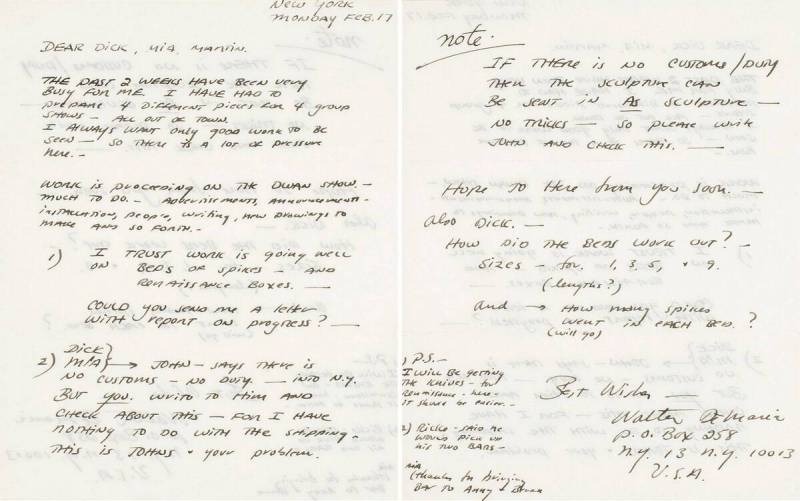 NEW YORK
MONDAY FEB. 17
DEAR DICK, MIA, MARTIN.
THE PAST 2 WEEKS HAVE BEEN VERY
BUSY FOR ME. I HAVE HAD TO
PREPARE 4 DIFFERENT PIECES FOR 4 GROUP
SHOWS – ALL OUT OF TOWN.
I ALWAYS WANT ONLY GOOD WORK TO BE
SEEN – SO THERE IS A LOT OF PRESSURE
HERE. –
WORK IS PROCEEDING ON THE DWAN SHOW. –
MUCH TO DO. – ADVERTISEMENTS, ANNOUNCEMENTS –
INSTALLATION, PEOPLE, WRITING, NEW DRAWINGS TO
MAKE AND SO FORTH. –
1) I TRUST WORK IS GOING WELL
ON BEDS OF SPIKES – AND
RENAISSANCE BOXES. —
COULD YOU SEND ME A LETTER
WITH REPORT ON PROGRESS? —
2) DICK
MIA } → JOHN – SAYS THERE IS
NO CUSTOMS – NO DUTY. — INTO N.Y.
BUT YOU. WRITE TO HIM AND
CHECK ABOUT THIS – FOR I HAVE
NOTHING TO DO WITH THE SHIPPING. –
THIS IS JOHNS + YOUR PROBLEM.
NOTE:
IF THERE IS NO CUSTOMS/DUTY
THEN THE SCULPTURE CAN
BE SENT IN AS SCULPTURE —
NO TRICKS – SO PLEASE WRITE
JOHN AND CHECK THIS. —
HOPE TO HERE FROM YOU SOON. —
ALSO DICK. —
HOW DID THE BEDS WORK OUT? –
SIZES – FOR. 1, 3, 5, + 9.
(LENGTHS?)
AND → HOW MANY SPIKES
WENT IN EACH BED. ?
(WILL GO)
1) P.S. –
I WILL BE GETTING
THE KNIVES – FOR
RENAISSANCE – HERE –
IT SHOULD BE EASIER. –
2) RICKO – SAID HE
WOULD PICK UP
HIS TWO BARS –
MIA
(THANKS FOR BRINGING
BAR TO ANNY +
Best Wishes —
Walter De Maria
P.O. BOX 258
N.Y. 13 N.Y. 10013
U.S.A.